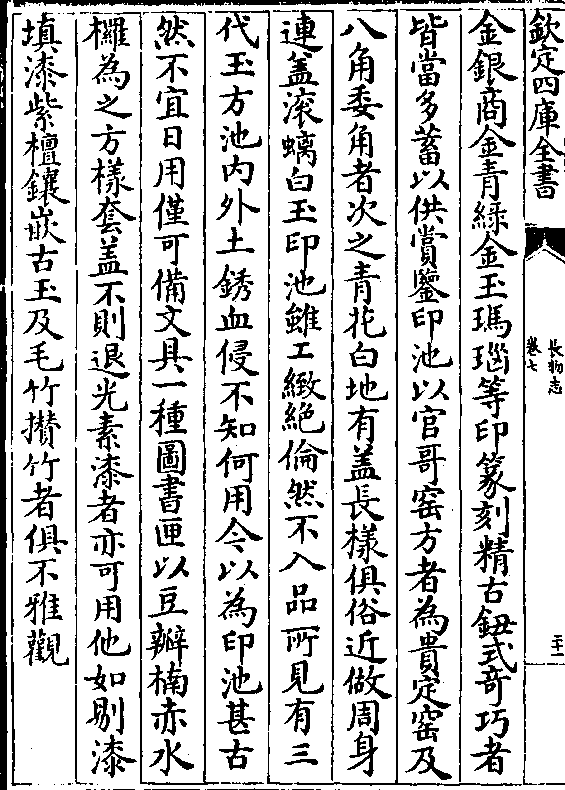 欽定四庫全書
長物志
卷七
二十一
金銀商金青綠金玉瑪瑙等印篆刻精古鈕式竒巧者
皆當多蓄以供賞鑒印池以官哥窑方者為貴定窑及
八角委角者次之青花白地有盖長樣俱俗近做周身
連盖滚螭白玉印池雖工緻絶倫然不入品所見有三
代玉方池内外土銹血侵不知何用今以為印池甚古
然不宜日用僅可備文具一種圖書匣以豆瓣楠赤水
欏為之方樣套盖不則退光素漆者亦可用他如剔漆
填漆紫檀鑲嵌古玉及毛竹攅竹者俱不雅觀